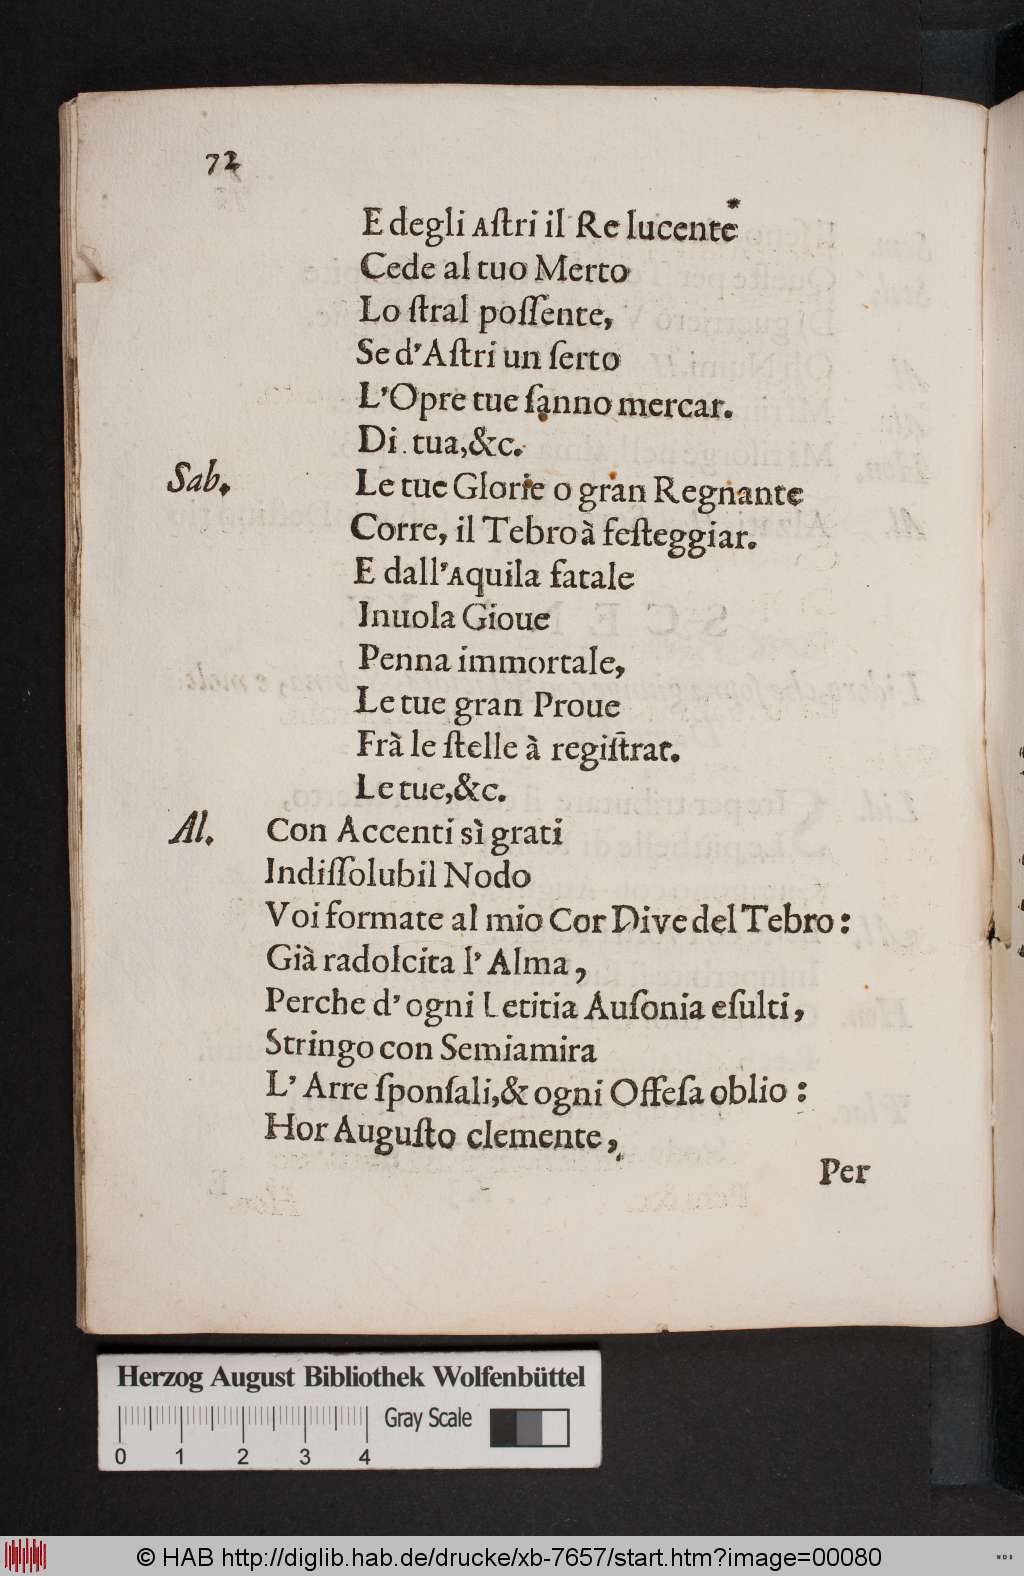 72
E degli Aſtri il Re lucente
Cede al tuo Merto
Lo ſtral poſſente,
Se d'Aſtri un ſerto
L'Opre tue ſanno mercar.
Di tua,&c.
Sab. Le tue Glorie o gran Regnante
Corre, il Tebro à feſteggiar.
E dall'Aquila fatale
Inuola Gioue
Penna immortale,
Le tue gran Proue
Frà le ſtelle à regiſtrar.
Le tue,&c.
Al. Con Accenti sì grati
Indiſſolubil Nodo
Voi formate al mio Cor Dive del Tebro:
Già radolcita l' Alma,
Perche d' ogni Letitia Auſonia eſulti,
Stringo con Semiamira
L' Arre ſponſali,& ogni Offeſa oblio:
Hor Auguſto clemente,
Per
Herzog August Bibliothek Wolfenbüttel
Gray Scale
0 1 2 3 4
© HAB http://diglib.hab.de/drucke/xb-7657/start.htm?image=00080